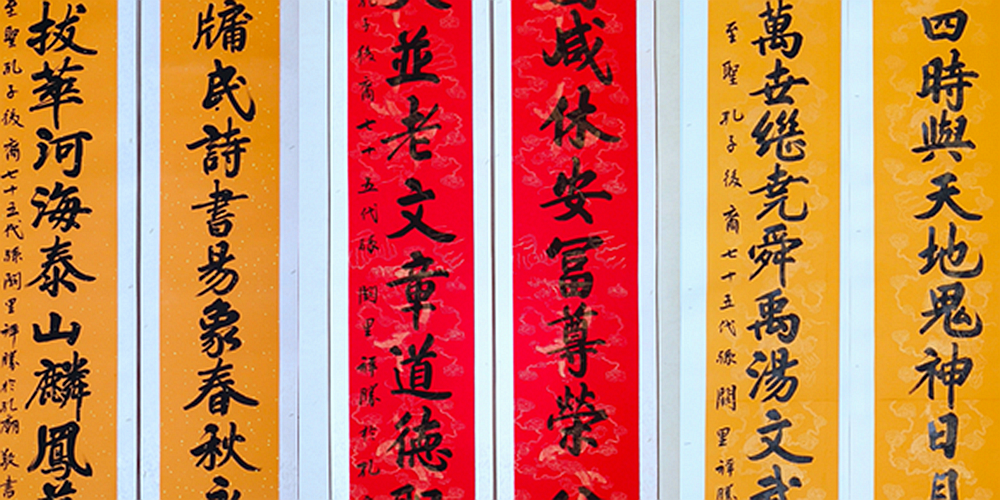 四時與天地鬼神日月
萬世繼堯舜禹湯文武
至聖孔子後裔七十五代孫闕里祥勝
咸休安冨尊榮公
並老文章道德聖
孔子後裔七十五代孫闕里祥勝於孔
牖民詩書易象春秋永
拔萃河海泰山麟鳳
至聖孔子後裔七十五代孫闕里祥勝於孔廟敬書